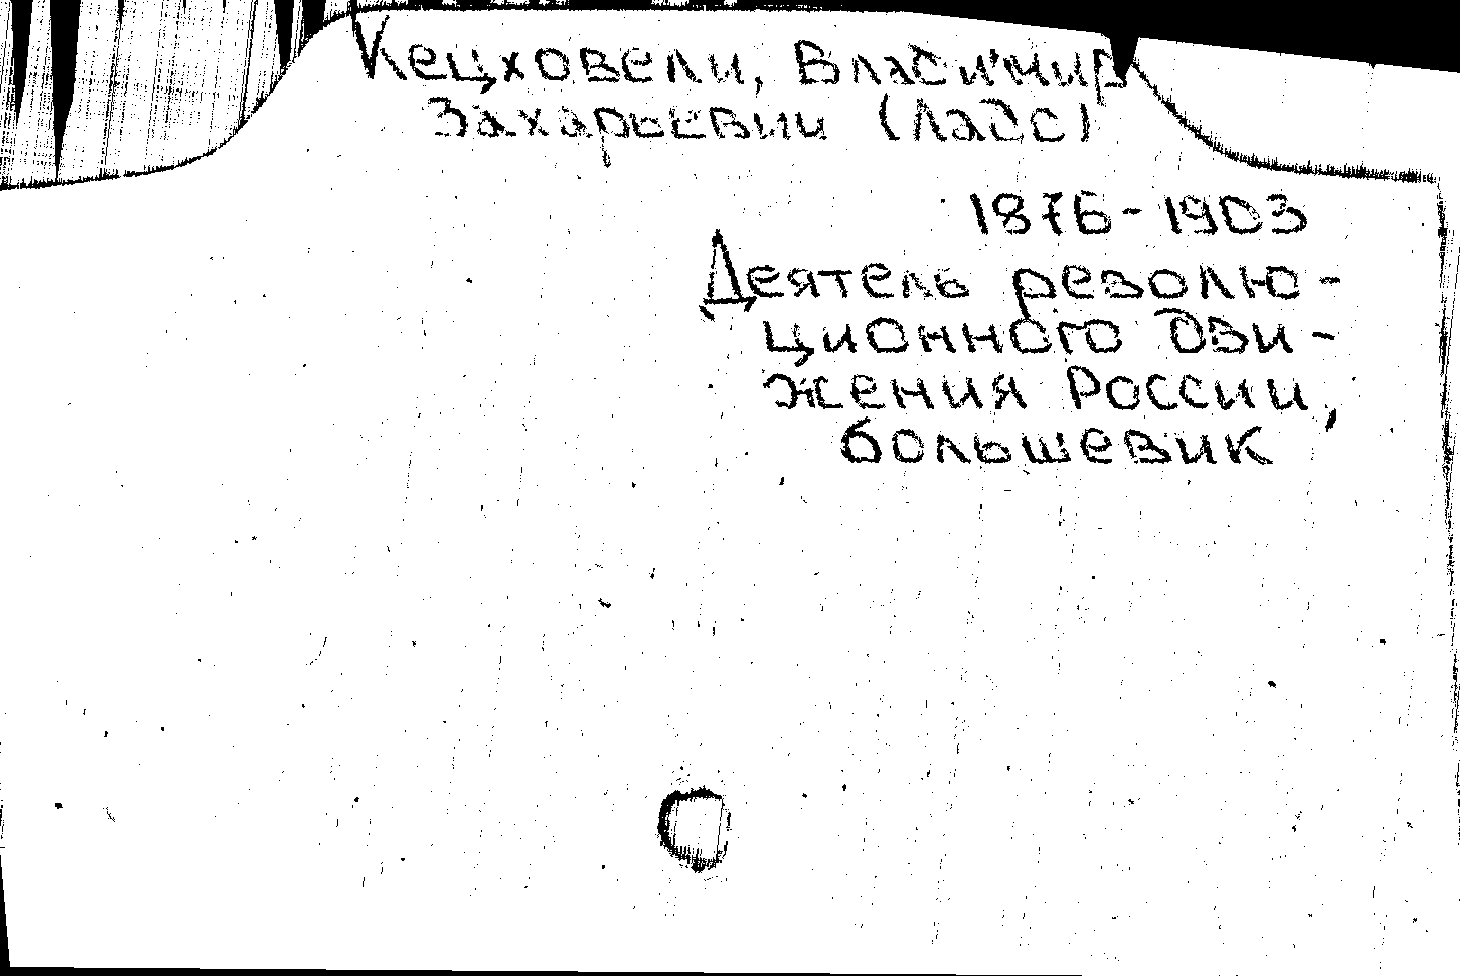 Кецховели, Владимир
Захарьевич (Ладо)
1876-1903
Деятель револю-
ционного дви-
жения России,
большевик